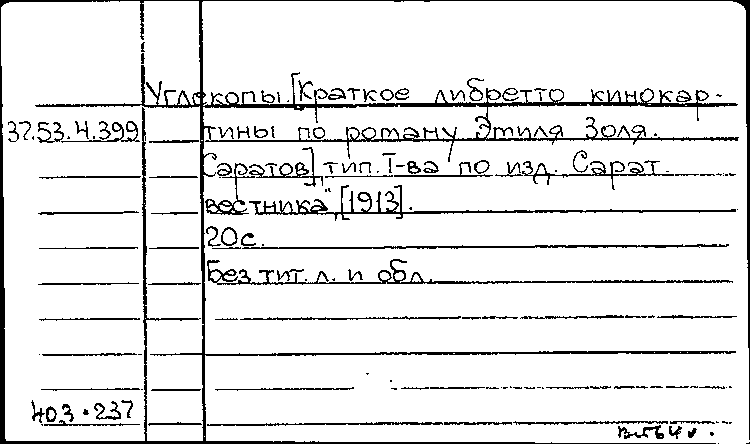 Углекопы. [Краткое либретто кинокар-
37.53.4.399 тины по роману Эмиля Золя.
Саратов], тип. Т-ва по изд. „Сарат.
вестника", [1913].
20 с.
Без тит. л. и обл.
403•237